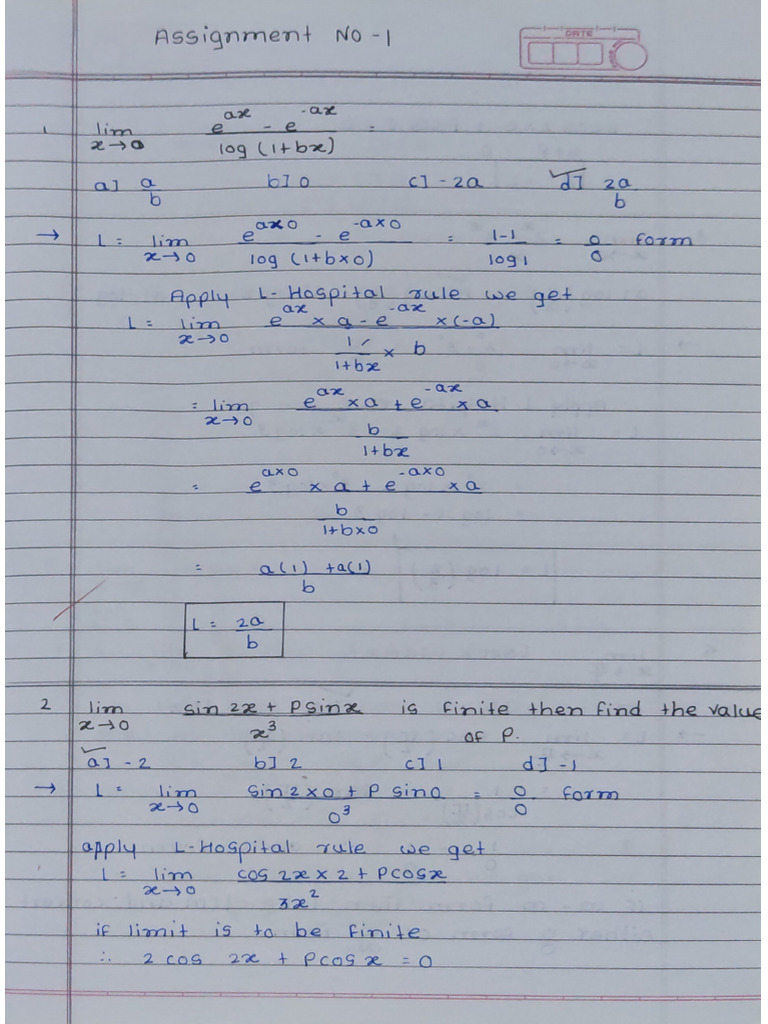 Assignment No-1
DATE
1 lim x→0 e^ax - e^-ax / log (1+bx) =
a] a/b b] 0 c] -2a d] 2a/b
→ L = lim x→0 e^ax0 - e^-ax0 / log (1+bx0) = 1-1 / log1 = 0/0 form
Apply L-Hospital rule we get
L = lim x→0 e^ax × a - e^-ax × (-a) / 1/1+bx × b
= lim x→0 e^ax × a + e^-ax × a / b/1+bx
= e^ax0 × a + e^-ax0 × a / b/1+bx0
= a(1) + a(1) / b
L = 2a/b
2 lim x→0 sin 2x + P sinx / x^3 is finite then find the value
of P.
a] -2 b] 2 c] 1 d] -1
→ L = lim x→0 sin 2×0 + P sin0 / 0^3 = 0/0 form
apply L-Hospital rule we get
L = lim x→0 cos 2x × 2 + P cosx / 3x^2
if limit is to be finite
∴ 2 cos 2x + P cos x = 0